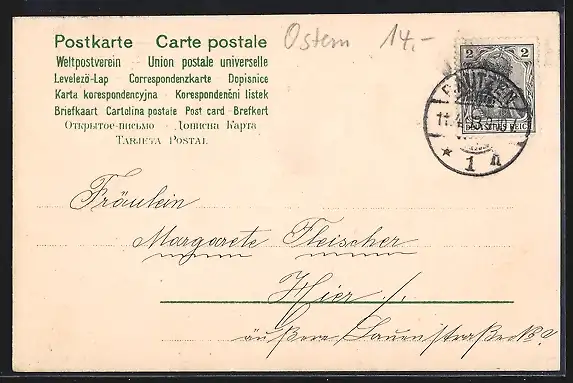 Postkarte Carte postale
Weltpostverein Union postale universelle
Levelező-Lap Correspondenzkarte Dopisnice
Karta korespondencyjna Korespondenční listek
Briefkaart Cartolina postale Post card Brefkort
Открытое-письмо Дописна Карта
Tarjeta Postal
Ostern 14.-
2 2
DEUTSCHES REICH
BAUTZEN
11.4.
* 1 n
Fräulein
Margarete Fleischer
Hier /.
äußere